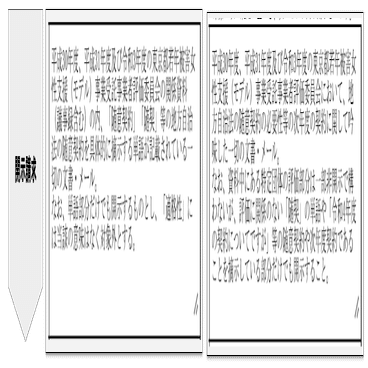 開示請求
平成30年度、平成31年度及び令和2年度の東京都若年被害女
性支援（モデル）事業受託事業者評価委員会の開催資料
（議事録含む）の内、「随意契約」「随契」等の地方自治
法の随意契約を具体的に摘示する単語が記載されている一
切の文書・メール。
なお、単語部分だけでも開示するものとし、「適格性」に
は当該の意味はなく対象外とする。
平成30年度、平成31年度及び令和2年度の東京都若年被害女
性支援（モデル）事業受託事業者評価委員会において、地
方自治法の随意契約の必要性等の次年度の契約に関して吟
味した一切の文書・メール。
なお、資料中にある特定団体の評価部分は一部非開示で構
わないが、評価に関係のない「随契」の単語や「令和4年度
の契約についてですが」等の随意契約や次年度契約である
ことを摘示している部分だけでも開示すること。